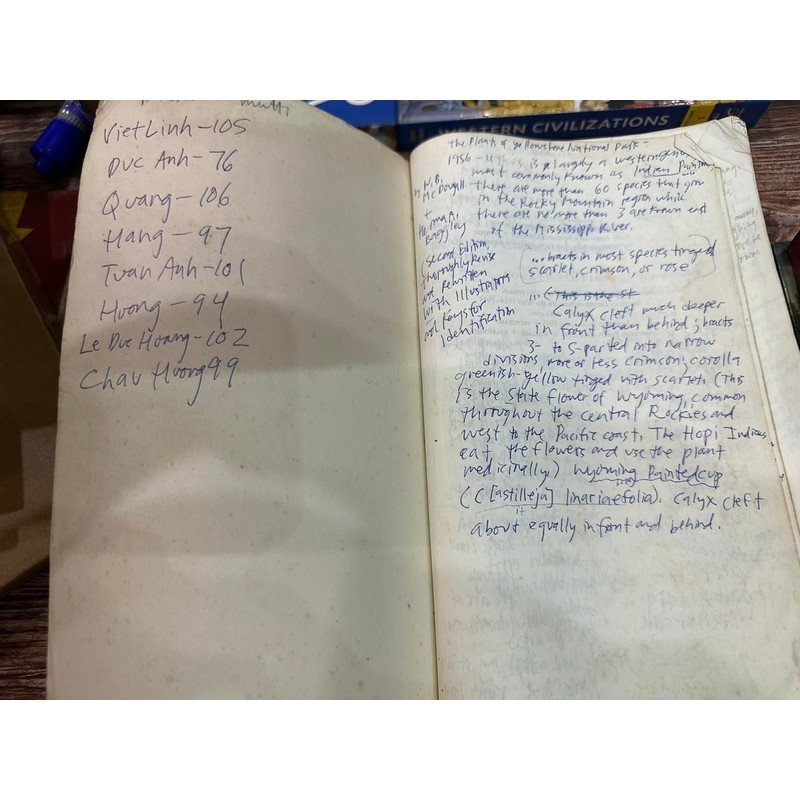 multi
Viet Linh - 105
Duc Anh - 76
Quang - 106
Hang - 97
Tuan Anh - 101
Huong - 94
Le Duc Hoang - 102
Chau Huong 99
WESTERN CIVILIZATIONS
The Plants of Yellowstone National Park -
1956 - is largely a western
most commonly known as Indian
there are more than 60 species that grow
in the Rocky Mountain region while
there are no more than 3 are known east
of the Mississippi River.
by W.B.
McDougall
+
Herma
Baggley
Second Edition,
thoroughly Revise
and Rewritten
with Illustrations
and Keys for
Identification
...bracts in most species tinged
scarlet, crimson, or rose
... (This is the st
Calyx cleft much deeper
in front than behind; bracts
3- to 5-parted into narrow
divisions more or less crimson; corolla
greenish-yellow tinged with scarlet. (This
is the State flower of Wyoming, common
throughout the central Rockies and
west to the Pacific coast. The Hopi Indians
eat the flowers and use the plant
medicinally.) Wyoming Paintedcup
(C[astilleja] linariaefolia). Calyx cleft
about equally in front and behind.